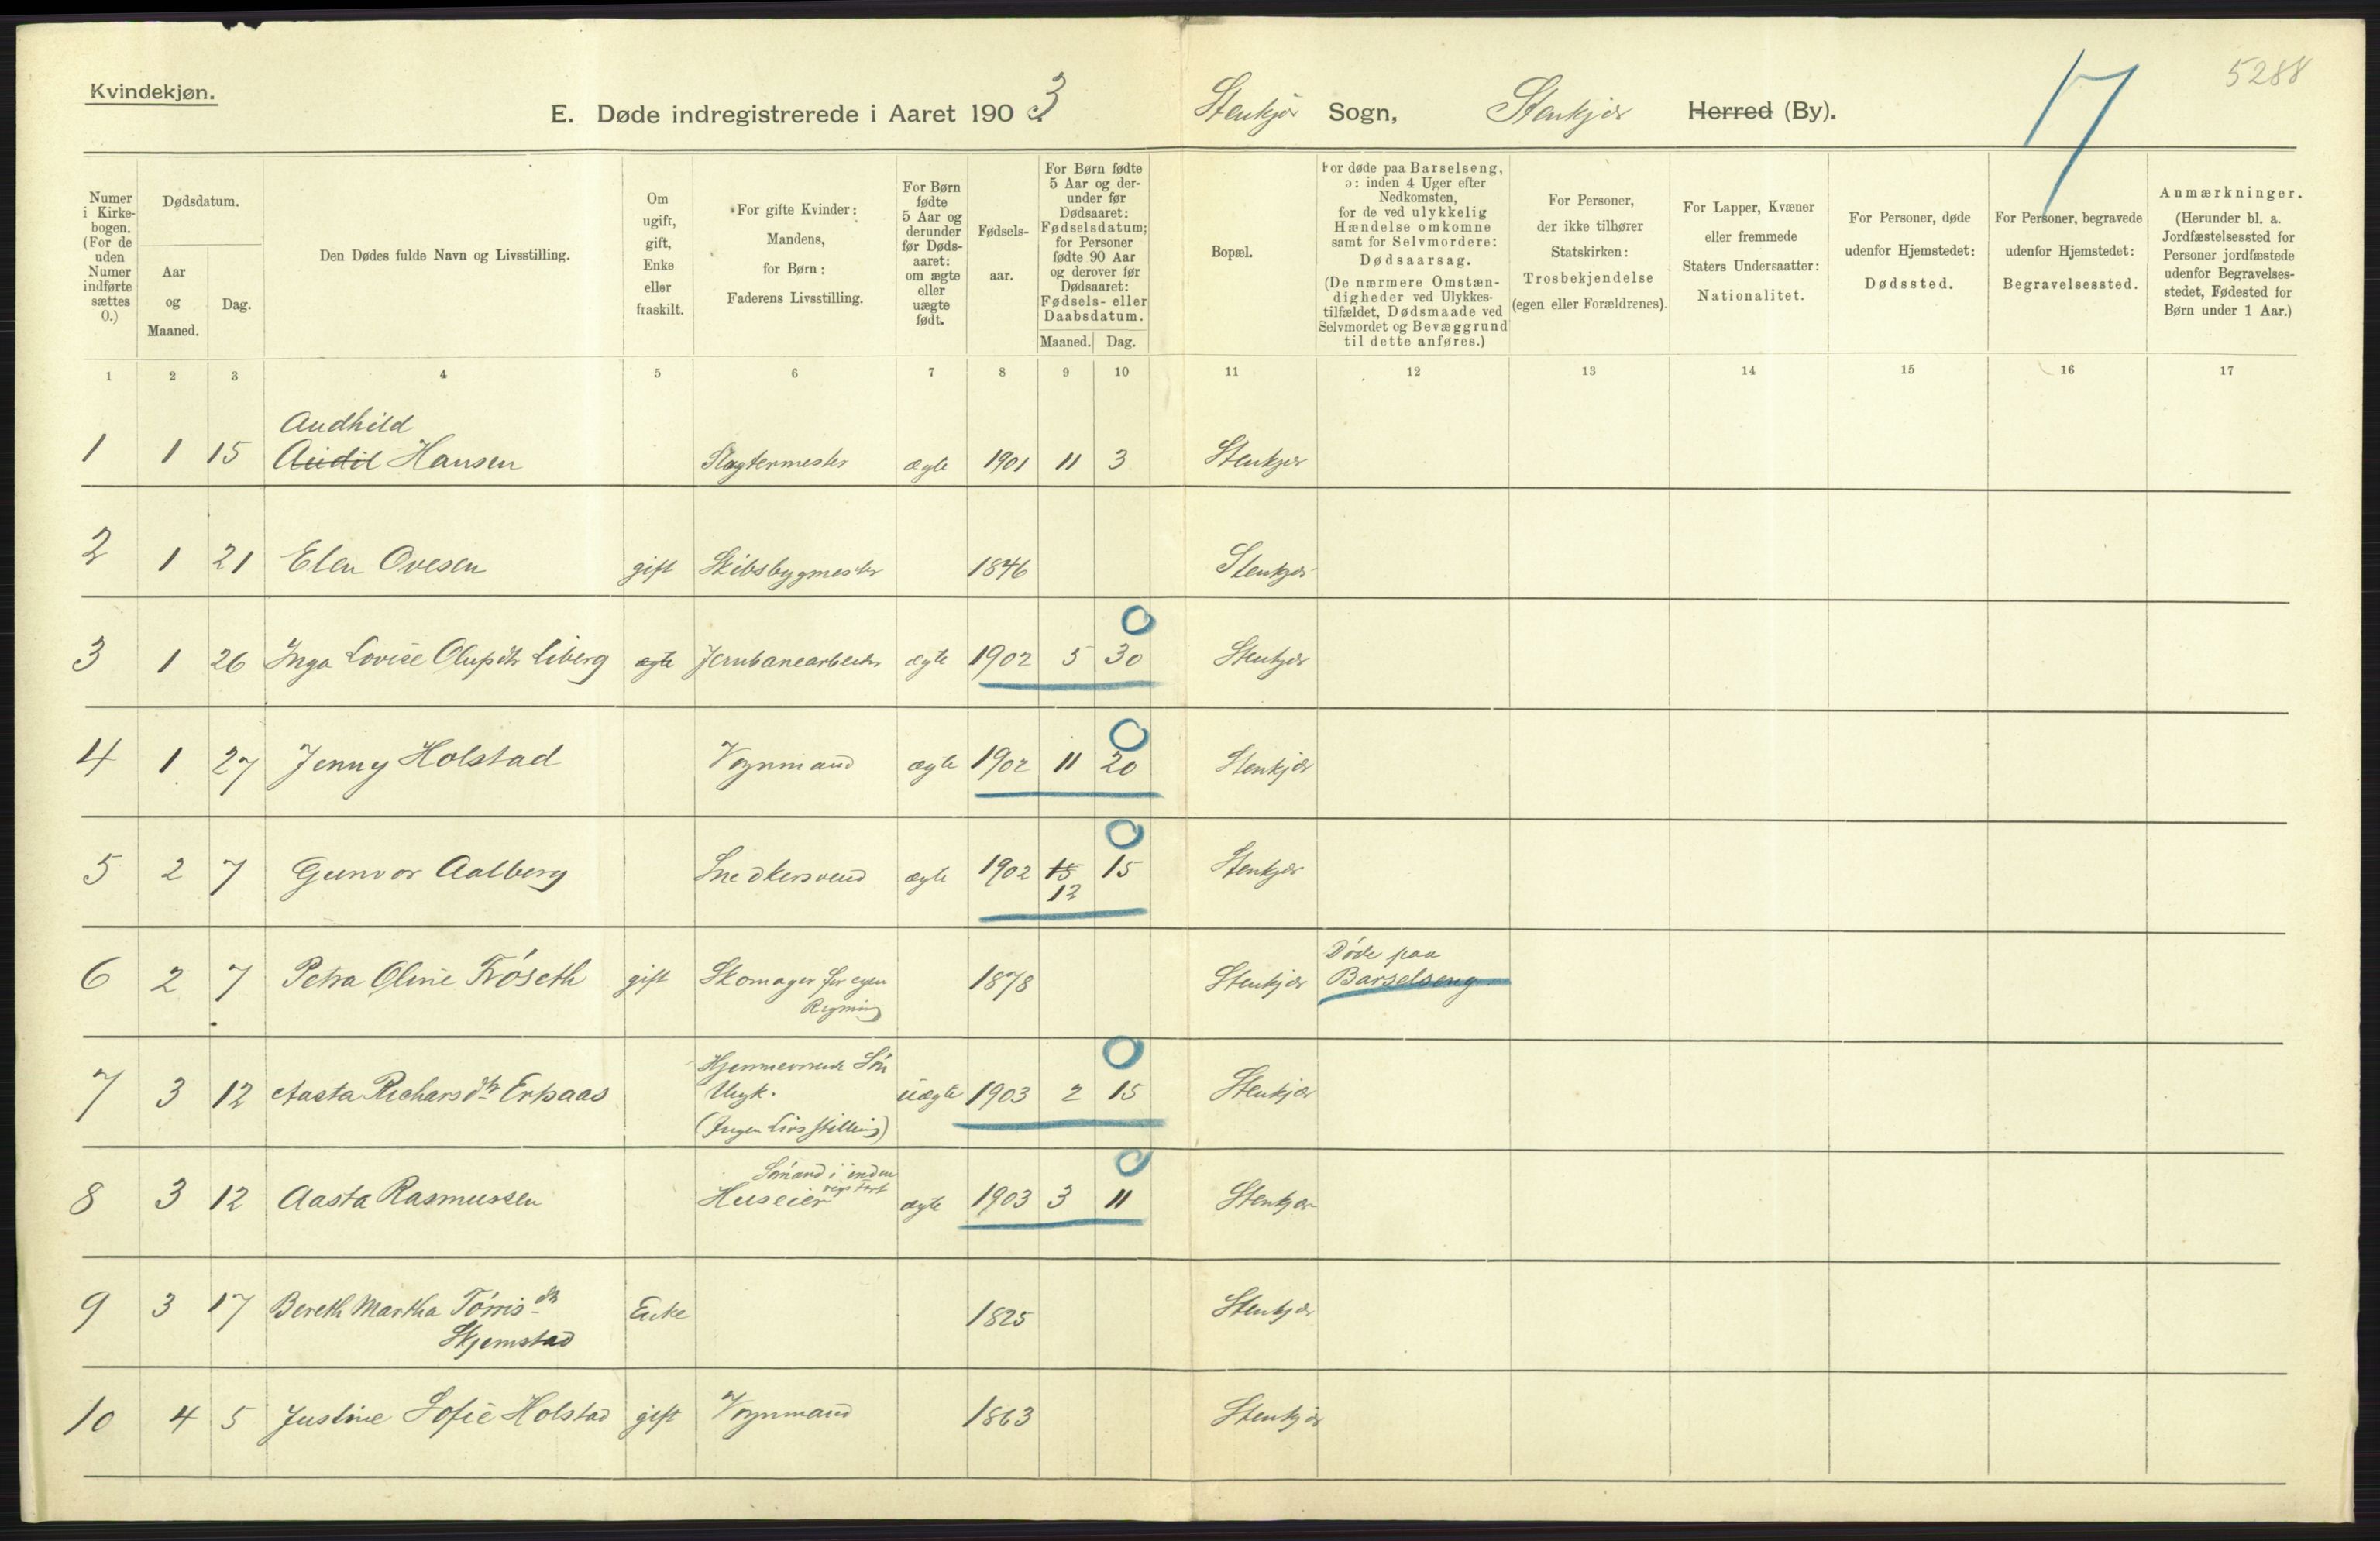 Kvindekjøn.
5288
17
E. Døde indregistrerede i Aaret 1903 Stenkjær Sogn, Stenkjær Herred (By).
Numer i Kirkebogen. (For de uden Numer indførte sættes 0.)
Dødsdatum.
Aar og Maaned.
Dag.
Den Dødes fulde Navn og Livsstilling.
Om ugift, gift, Enke eller fraskilt.
For gifte Kvinder: Mandens, for Børn: Faderens Livsstilling.
For Børn fødte 5 Aar og derunder før Dødsaaret: om ægte eller uægte født.
Fødselsaar.
For Børn fødte 5 Aar og derunder før Dødsaaret: Fødselsdatum; for Personer fødte 90 Aar og derover før Dødsaaret: Fødsels- eller Daabsdatum.
Maaned. Dag.
Bopæl.
For døde paa Barselseng, ɔ: inden 4 Uger efter Nedkomsten, for de ved ulykkelig Hændelse omkomne samt for Selvmordere: Dødsaarsag.
(De nærmere Omstændigheder ved Ulykkestilfældet, Dødsmaade ved Selvmordet og Bevæggrund til dette anføres.)
For Personer, der ikke tilhører Statskirken: Trosbekjendelse (egen eller Forældrenes).
For Lapper, Kvæner eller fremmede Staters Undersaatter: Nationalitet.
For Personer, døde udenfor Hjemstedet: Dødssted.
For Personer, begravede udenfor Hjemstedet: Begravelsessted.
Anmærkninger. (Herunder bl. a. Jordfæstelsessted for Personer jordfæstede udenfor Begravelsesstedet, Fødested for Børn under 1 Aar.)
1 2 3 4 5 6 7 8 9 10 11 12 13 14 15 16 17
Audhild
1 1 15 Audil Hansen Slagtermester ægte 1901 11 3 Stenkjær
2 1 21 Elen Ovesen gift Skibsbygmester 1846 Stenkjær
0
3 1 26 Inga Lovise Olufsdtr Liberg ægte Jernbanearbeider ægte 1902 5 30 Stenkjær
0
4 1 27 Jenny Holstad Vognmand ægte 1902 11 20 Stenkjær
0
5 2 7 Gunvor Aalberg Snedkersvend ægte 1902 15 15 Stenkjær
12
Døde paa
6 2 7 Petra Oline Frøseth gift Skomager for egen 1878 Stenkjær Barselseng
Regning
0
Hjemmeværende Søn
7 3 12 Aasta Richardsdtr Ungk. uægte 1903 2 15 Stenkjær
(Ingen Livsstilling)
0
Sømand i inden
rigs fart
8 3 12 Aasta Rasmussen Huseier ægte 1903 3 11 Stenkjær
9 3 17 Bereth Martha Tørrisdtr Enke 1825 Stenkjær
Skjemstad
10 4 5 Justine Sofie Holstad gift Vognmand 1863 Stenkjær